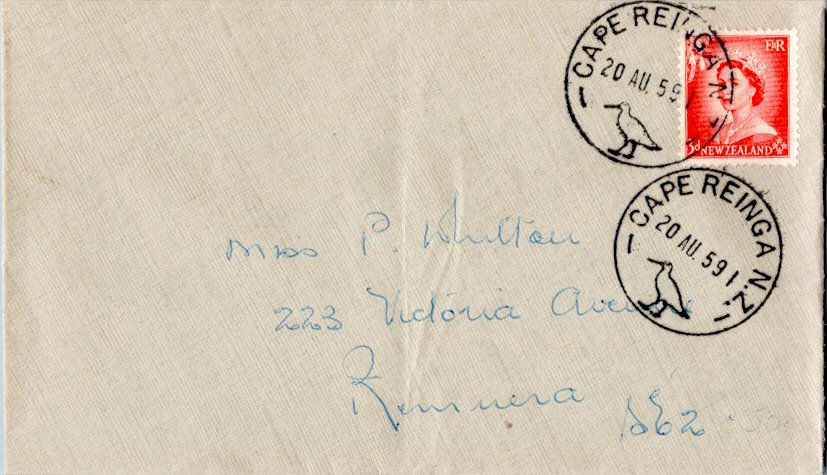 CAPE REINGA N.Z.
20 AU. 59 1
E R
3d NEW ZEALAND
CAPE REINGA N.Z.
20 AU. 59 1
Miss P. Whitton
223 Victoria Avenue
Remuera SE2